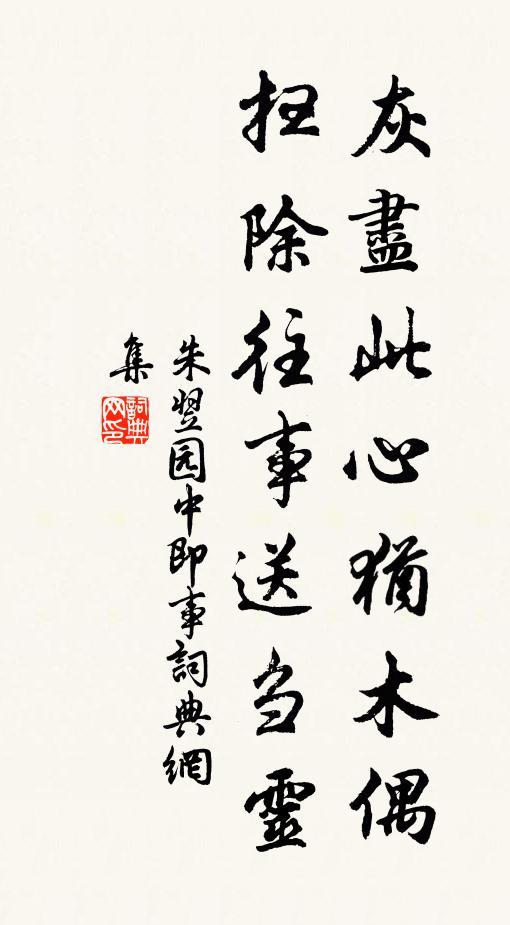 灰盡此心猶木偶
扫除往事送刍靈
朱翌园中即事詞典網
集
詞典
网印